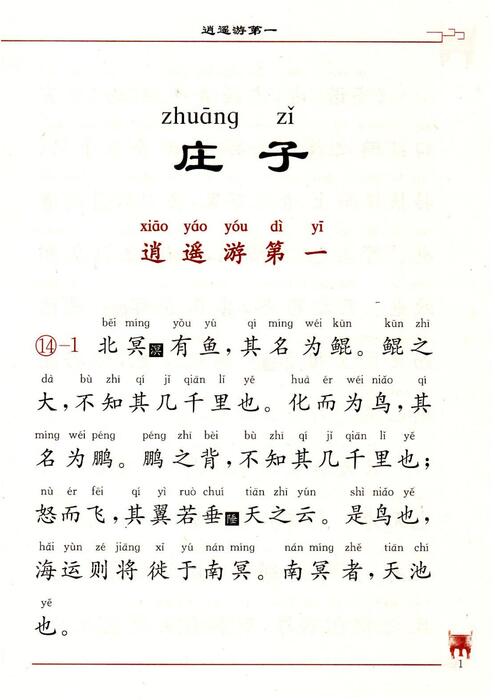 逍遥游第一
zhuāng zǐ
庄子
xiāo yáo yóu dì yī
逍遥游第一
běi míng yǒu yú qí míng wéi kūn kūn zhī
⑭-1 北冥溟有鱼，其名为鲲。鲲之
dà bù zhī qí jǐ qiān lǐ yě huà ér wéi niǎo qí
大，不知其几千里也。化而为鸟，其
míng wéi péng péng zhī bèi bù zhī qí jǐ qiān lǐ yě
名为鹏。鹏之背，不知其几千里也；
nù ér fēi qí yì ruò chuí tiān zhī yún shì niǎo yě
怒而飞，其翼若垂陲天之云。是鸟也，
hǎi yùn zé jiāng xǐ yú nán míng nán míng zhě tiān chí
海运则将徙于南冥。南冥者，天池
yě
也。
1